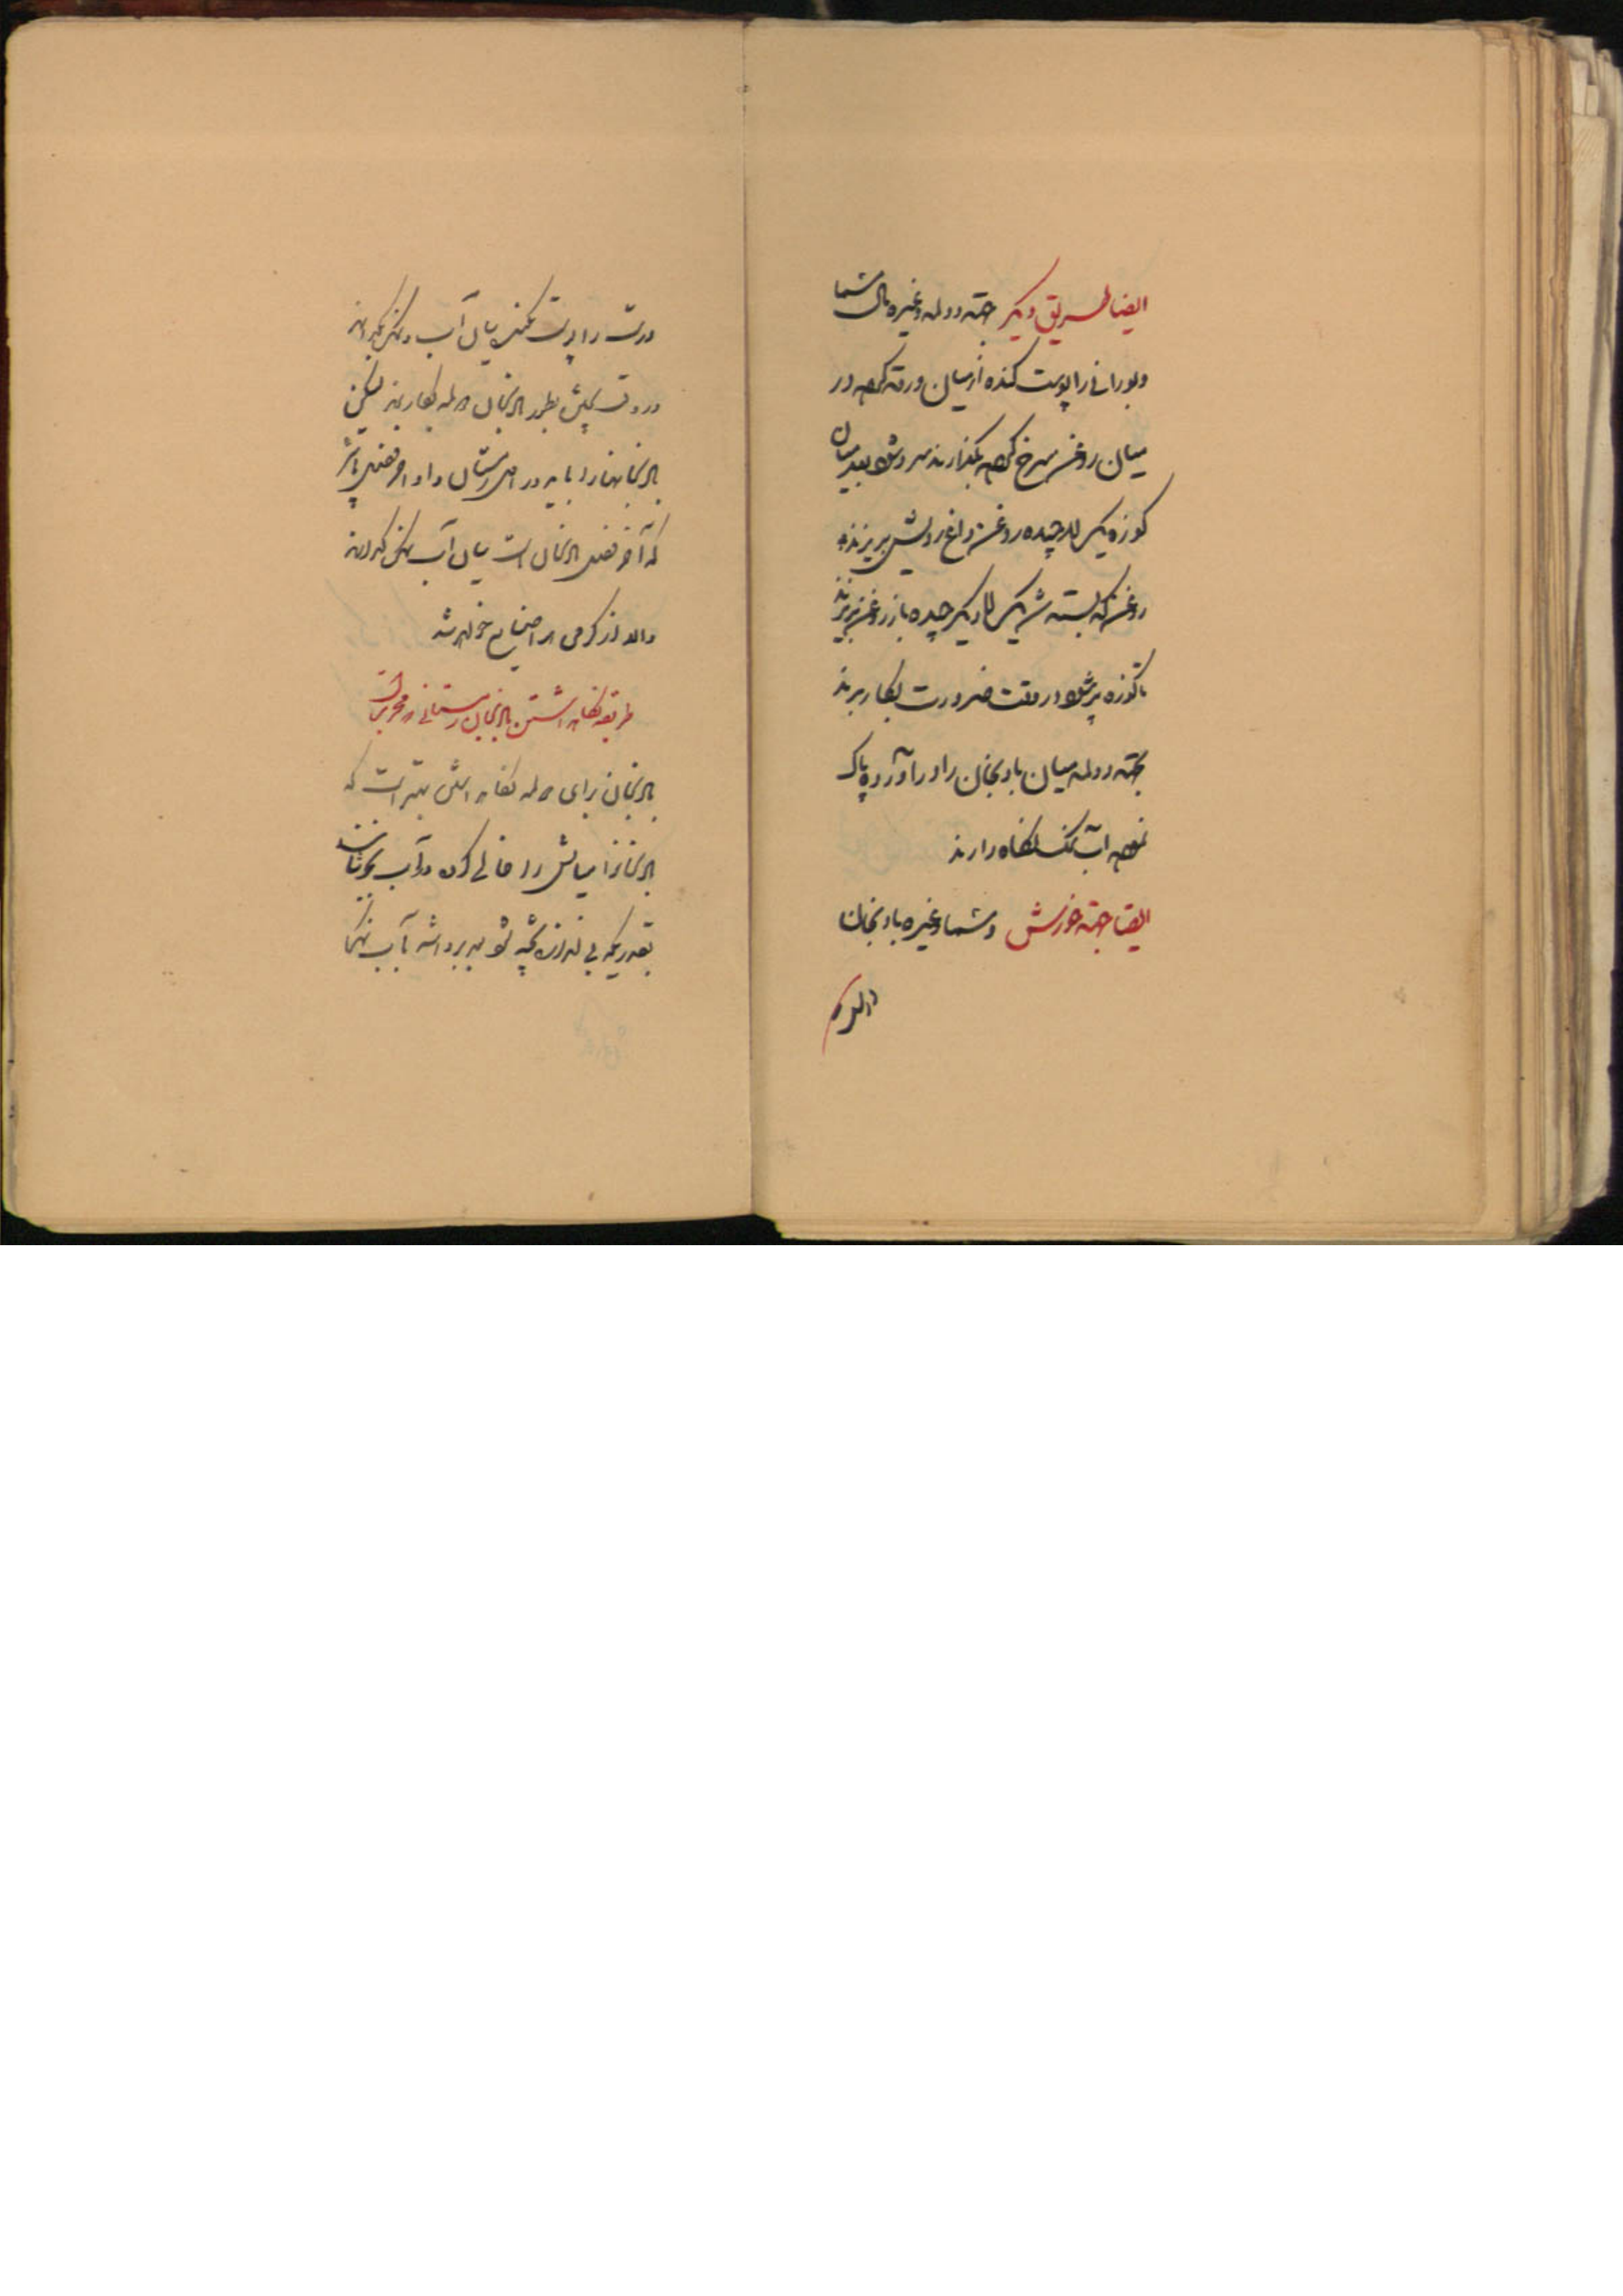 ایضا طریق دیگر جهته دولمه و غیره مال مشما
و بورانی را پوست کنده از میان ورقه کرده در
میان روغن سرخ کرده بگذارند سرد شود بعد میان
کوزه یک لا چیده روغن داغ رویش بریزند
روغن که بسته شد یک لا دیگر چیده باز روغن بریزند
تا کوزه پر شود در وقت ضرورت بکار برند
بجهته دولمه میان بادنجان را در آورده پاک
نموده آب نمک نگاه دارند
ایضا جهته خورش و مشما و غیره بادنجان
درست را پوست کنند میان آب و نمک نگهدارند
در وقت پختن بطور بادنجان دلمه بکار برند لیکن
بادنجانها را باید در اول زمستان و اواخر فصل باشد
که آخر فصل بادنجان است میان آب نمک نگهدارند
والا از گرمی هوا ضایع خواهد شد
طریقه نگاهداشتن بادنجان زمستانی از مجربات
بادنجان برای دلمه نگاه داشتن بهتر است که
بادنجانرا میانش را خالی کرده در آب بجوشانند
بقدریکه بی اندازه پخته نشود بعد برداشته با آب نمک